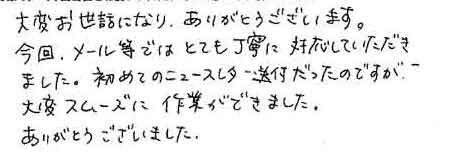 大変お世話になり、ありがとうございます。
今回、メール等ではとても丁寧に対応していただき
ました。初めてのニュースレター送付だったのですが、
大変スムーズに作業ができました。
ありがとうございました。